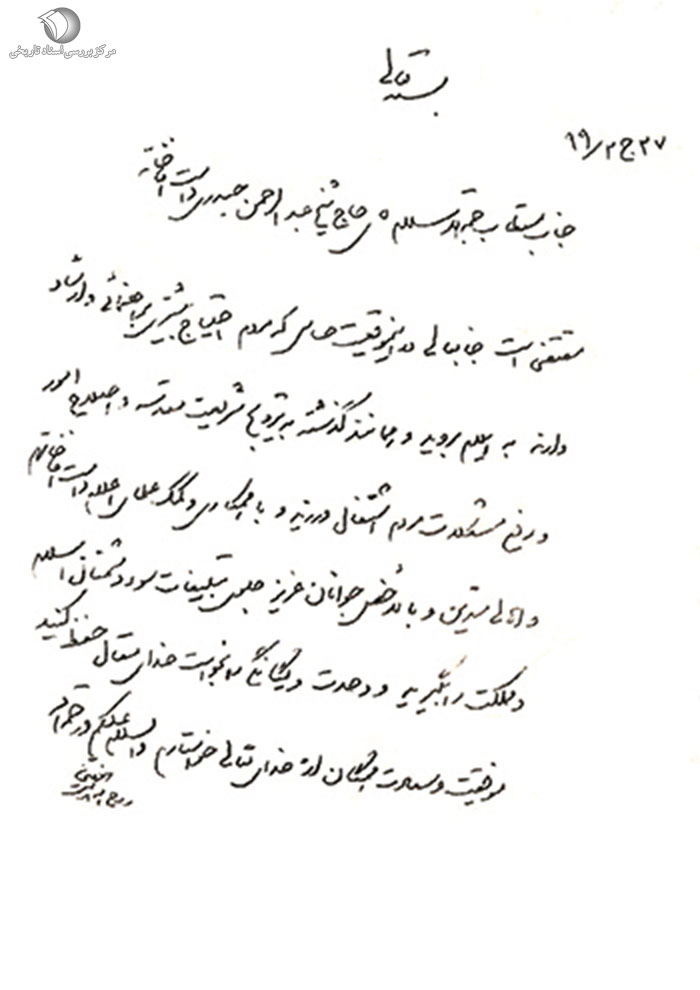 مرکز بررسی اسناد تاریخی
بسمه تعالی
۲۷ ج ۲ ر ۹۹
جناب مستطاب حجةالاسلام آقای حاج شیخ عبدالرحمن حیدری دامت افاضاته
مقتضی است جنابعالی در این موقعیت حساس که مردم احتیاج بیشتری براهنمائی و ارشاد
دارند به ایلام بروید و همانند گذشته به ترویج شریعت مقدسه و اصلاح امور
و رفع مشکلات مردم اشتغال ورزید و با همکاری و کمک علمای اعلام دامت افاضاتهم
و اهالی متدین و بالأخص جوانان عزیز جلوی تبلیغات سوء دشمنان اسلام
و مملکت را بگیرید و وحدت و یگانگی را بخواست خدای متعال حفظ کنید
موفقیت و سعادت همگان از خدای تعالی خواستارم والسلام علیکم و رحمة الله
روح الله الموسوی الخمینی